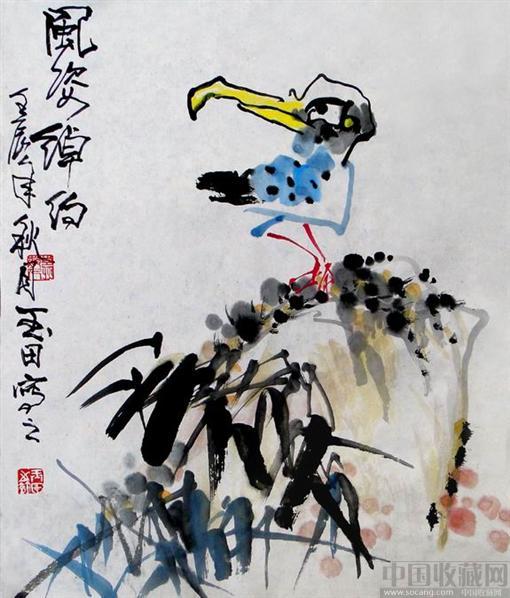 風姿绰约
壬辰年秋月玉田寫之
中国收藏网
www.socang.com
中国收藏网